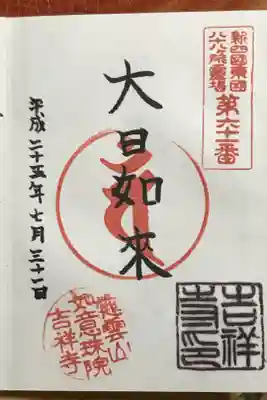 新四國東國
八十八ヶ所霊場
第六十一番
大日如來
平成二十五年七月三十一日
慈雲山
如意珠院
吉祥寺
吉祥
寺印